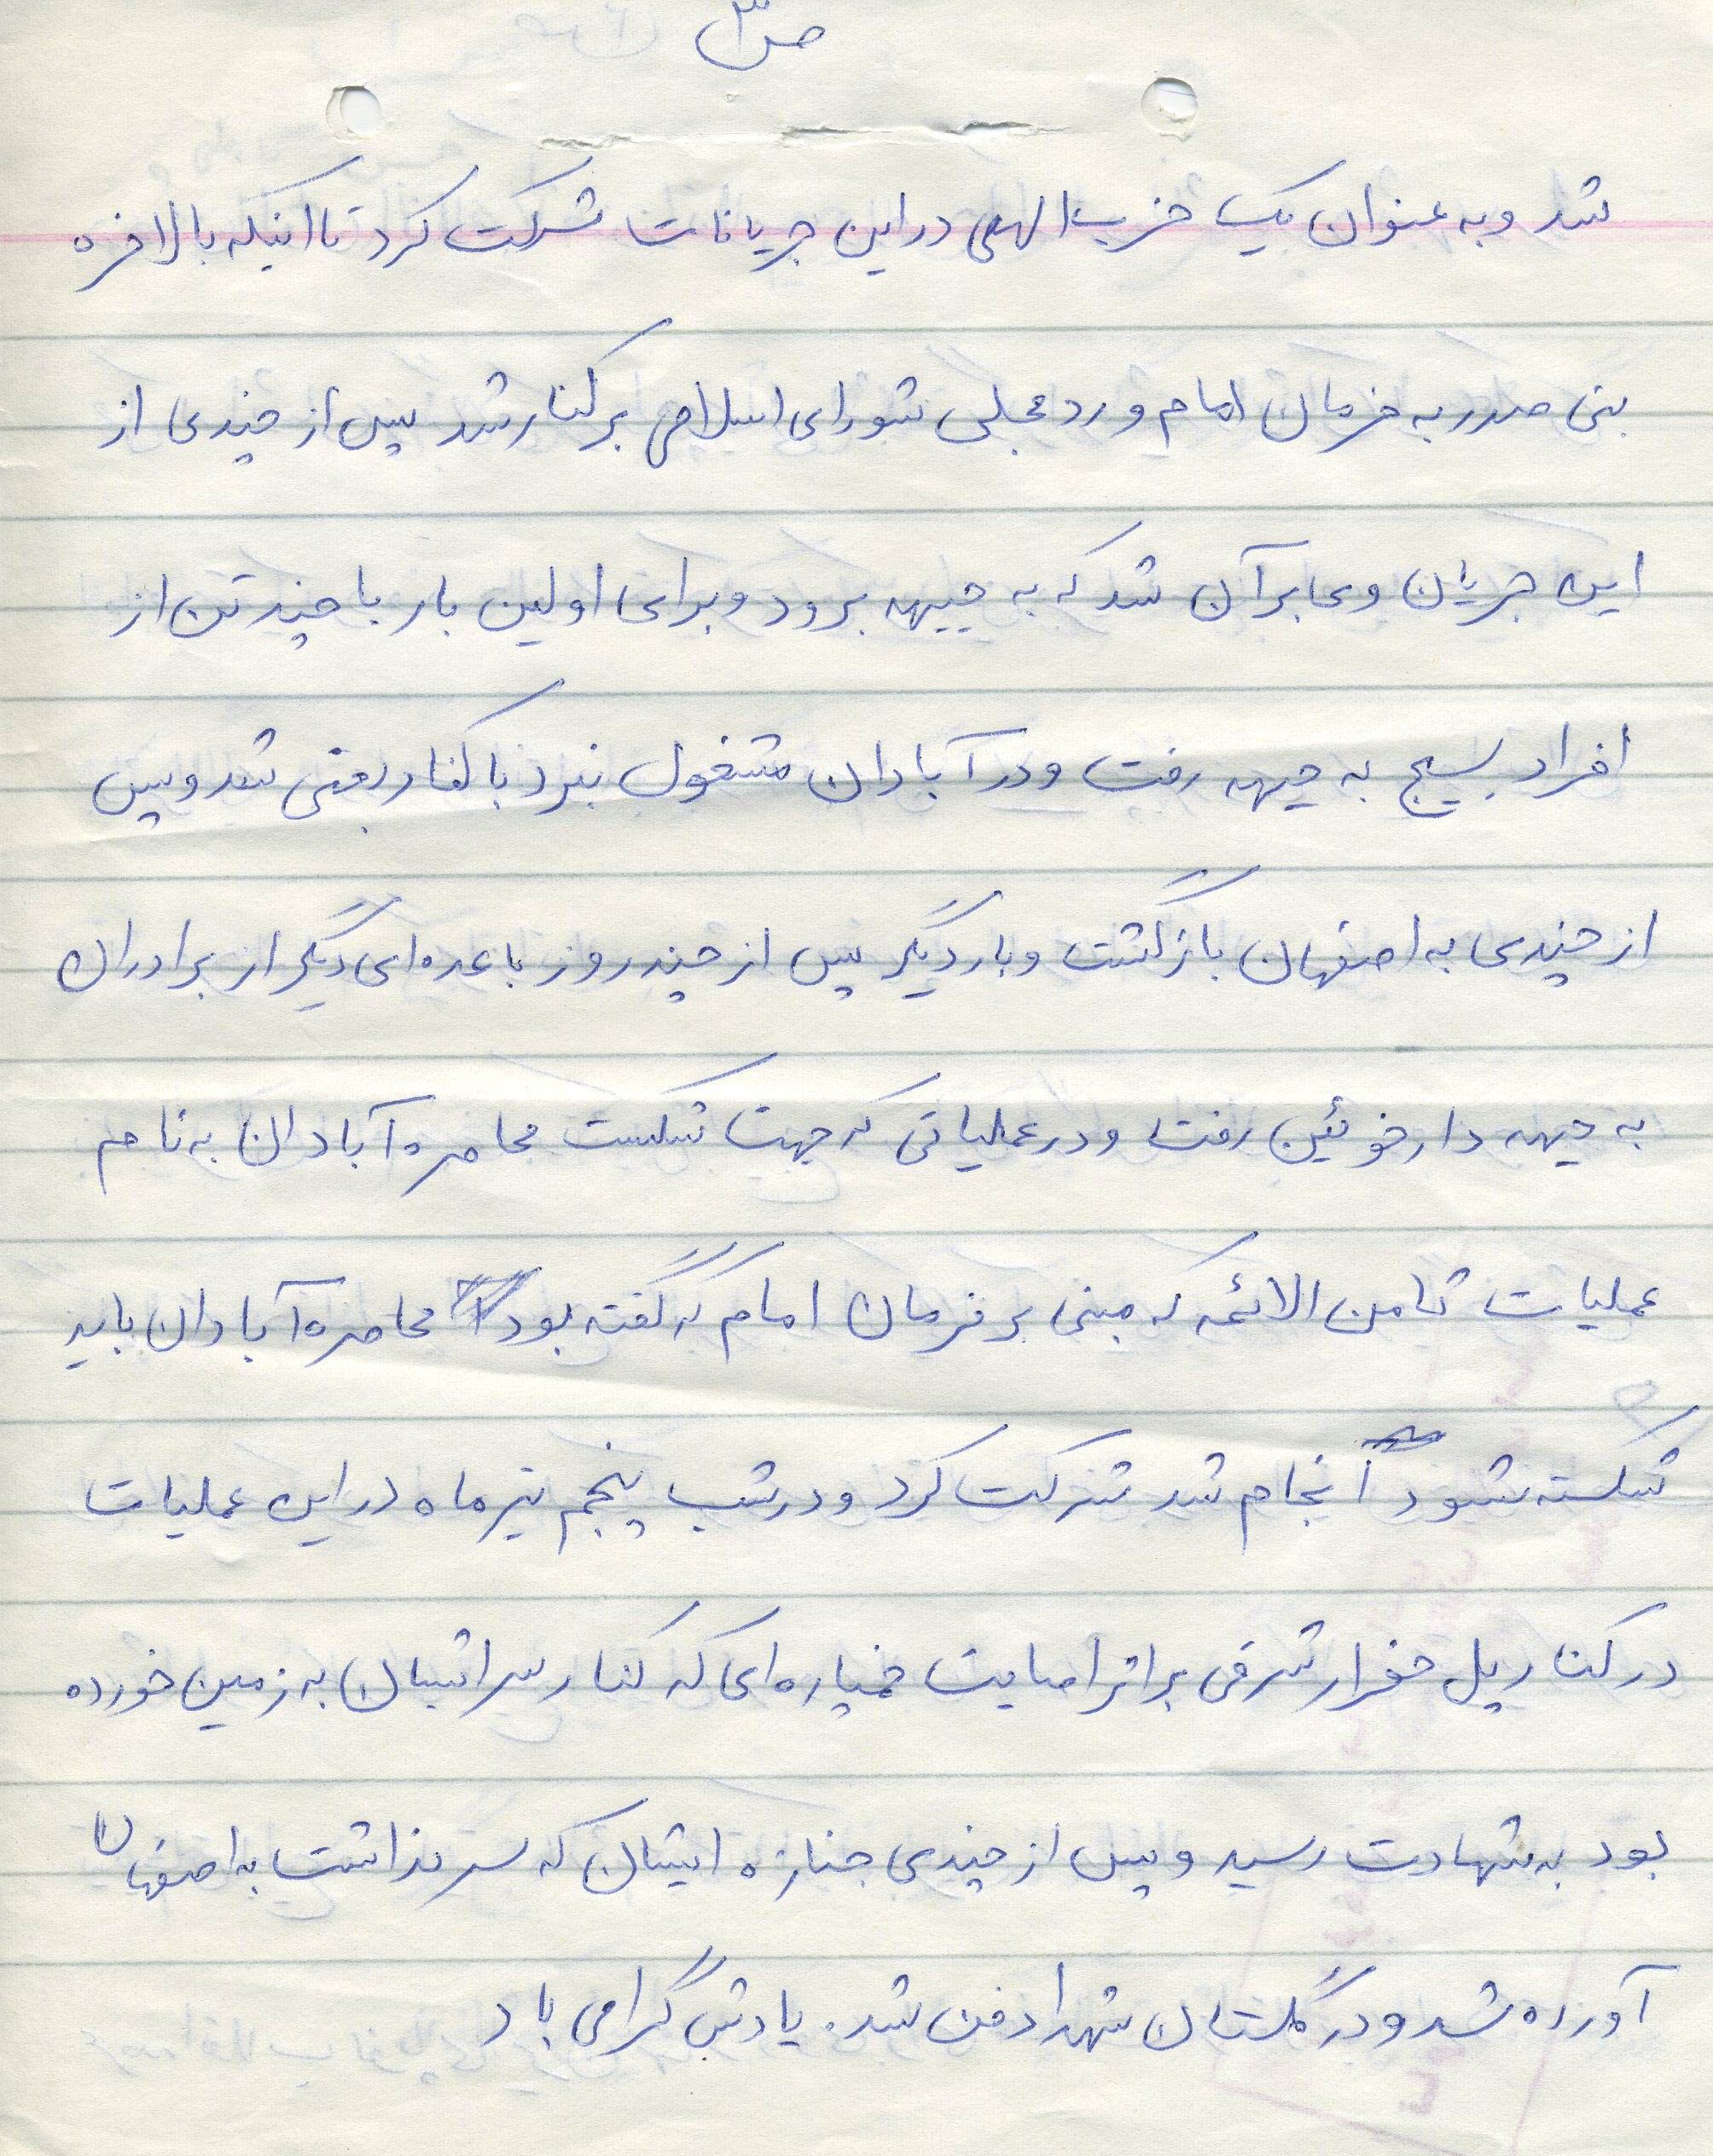 شد و به عنوان یک حزب الهی در این جریانات شرکت کرد تا اینکه بالاخره
بنی صدر به فرمان امام و رد مجلس شورای اسلامی برکنار شد پس از چندی از
این جریان وی بر آن شد که به جبهه برود و برای اولین بار با چند تن از
افراد بسیج به جبهه رفت و در آبادان مشغول نبرد با کفار بعثی شد و پس
از چندی به اصفهان بازگشت و بار دیگر پس از چند روز با عده‌ای دیگر از برادران
به جبهه دارخوئین رفت و در عملیاتی که جهت شکست محاصره آبادان به نام
عملیات ثامن الائمه که مبنی بر فرمان امام که گفته بود محاصره آبادان باید
شکسته شود انجام شد شرکت کرد و در شب پنجم تیر ماه در این عملیات
در کنار پل حفار شرقی بر اثر اصابت خمپاره‌ای که کنار سر ایشان به زمین خورده
بود به شهادت رسید و پس از چندی جنازه ایشان که سر نداشت به اصفهان
آورده شد و در گلستان شهدا دفن شد. یادش گرامی باد